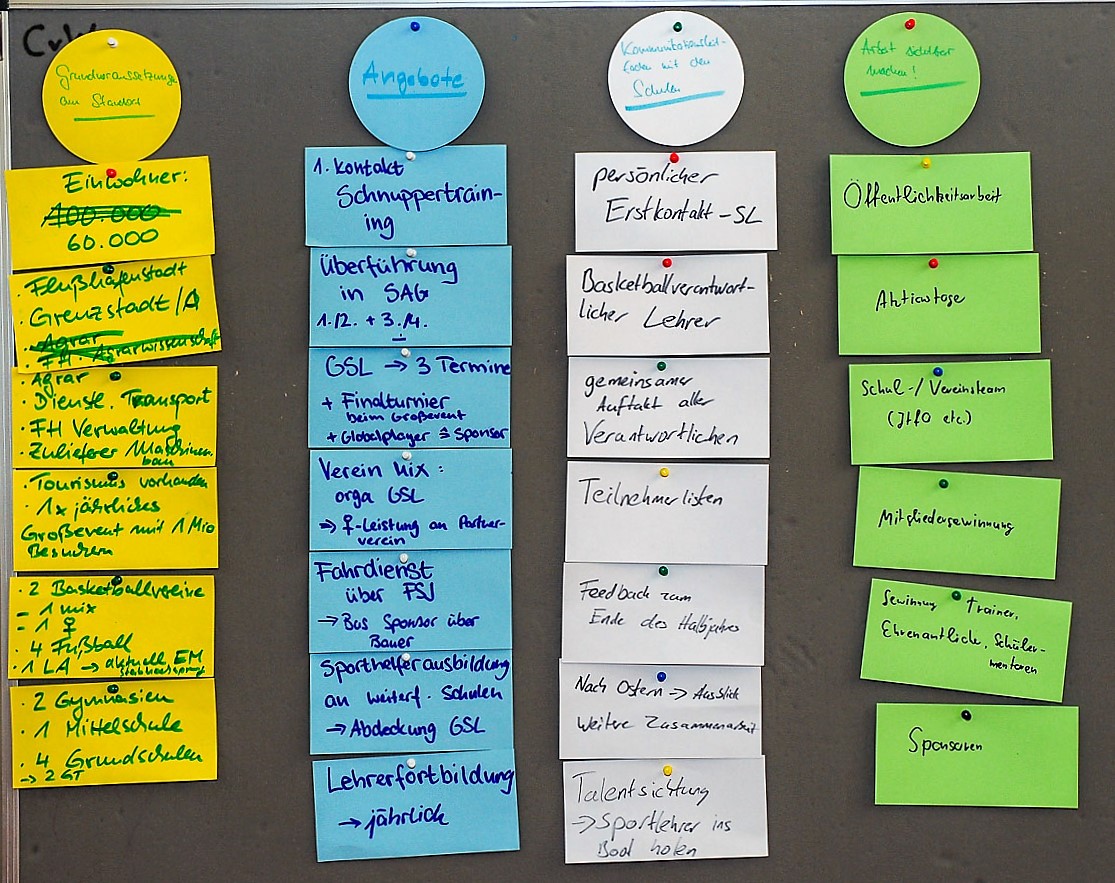 Grundvoraussetzungen
am Standort
Einwohner:
100.000
60.000
· Flußhafenstadt
· Grenzstadt /A
· Agrar
· FH · Agrarwissenschaft
· Agrar
· Dienstl. Transport
· FH Verwaltung
· Zulieferer Maschinen-
bau
· Tourismus vorhanden
· 1x jährliches
Großevent mit 1 Mio
Besuchern
· 2 Basketballvereine
= 1 mix
= 1 ♀
· 4 Fußball
· 1 LA → aktuell EM
Stabhochsprung
· 2 Gymnasien
· 1 Mittelschule
· 4 Grundschulen
→ 2 GT
Angebote
1. Kontakt
Schnuppertrain-
ing
Überführung
in SAG
1.12. + 3./4.
GSL → 3 Termine
+ Finalturnier
beim Großevent
+ Globalplayer ≙ Sponsor
Verein Mix :
orga GSL
⇒ ♀-Leistung an Partner-
verein
Fahrdienst
über FSJ
→ Bus Sponsor über
Bauer
Sporthelferausbildung
an weiterf. Schulen
→ Abdeckung GSL
Lehrerfortbildung
→ jährlich
Kommunikationsleit-
faden mit den
Schulen
persönlicher
Erstkontakt - SL
Basketballverantwort-
licher Lehrer
gemeinsamer
Auftakt aller
Verantwortlichen
Teilnehmerlisten
Feedback zum
Ende des Halbjahres
Nach Ostern → Ausblick
weitere Zusammenarbeit
Talentsichtung
→ Sportlehrer ins
Boot holen
Arbeit sichtbar
machen!
Öffentlichkeitsarbeit
Aktionstage
Schul-/ Vereinsteam
(JtfO etc.)
Mitgliedergewinnung
Gewinnung Trainer,
Ehrenamtliche, Schüler-
mentoren
Sponsoren